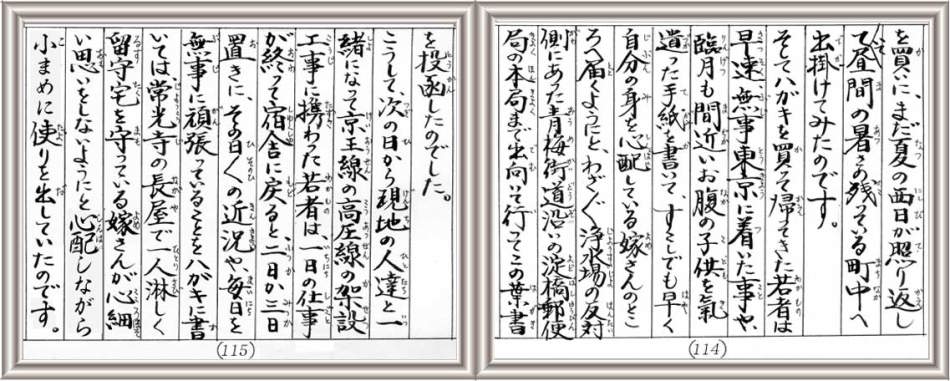 を買いに、まだ夏の西日が照り返し
て昼間の暑さの残っている町中へ
出掛けてみたのです。
そしてハガキを買って帰ってきた若者は
早速、無事東京に着いた事や、
臨月も間近いお腹の子供を氣
遣った手紙を書いて、すこしでも早く
自分の身を心配している嫁さんのとこ
ろへ届くようにと、わざ〲浄水場の反対
側にあった青梅街道沿いの淀橋郵便
局の本局まで出向いて行ってこの葉書
(114)
を投函したのでした。
こうして、次の日から現地の人達と一
緒になって京王線の高圧線の架設
工事に携わった若者は、一日の仕事
が終って宿舎に戻ると二日か三日
置きに、その日〱の近況や、毎日を
無事に頑張っていることをハガキに書
いては、常光寺の長屋で一人淋しく
留守宅を守っている嫁さんが心細
い思いをしないようにと心配しながら
小まめに便りを出していたのです。
(115)